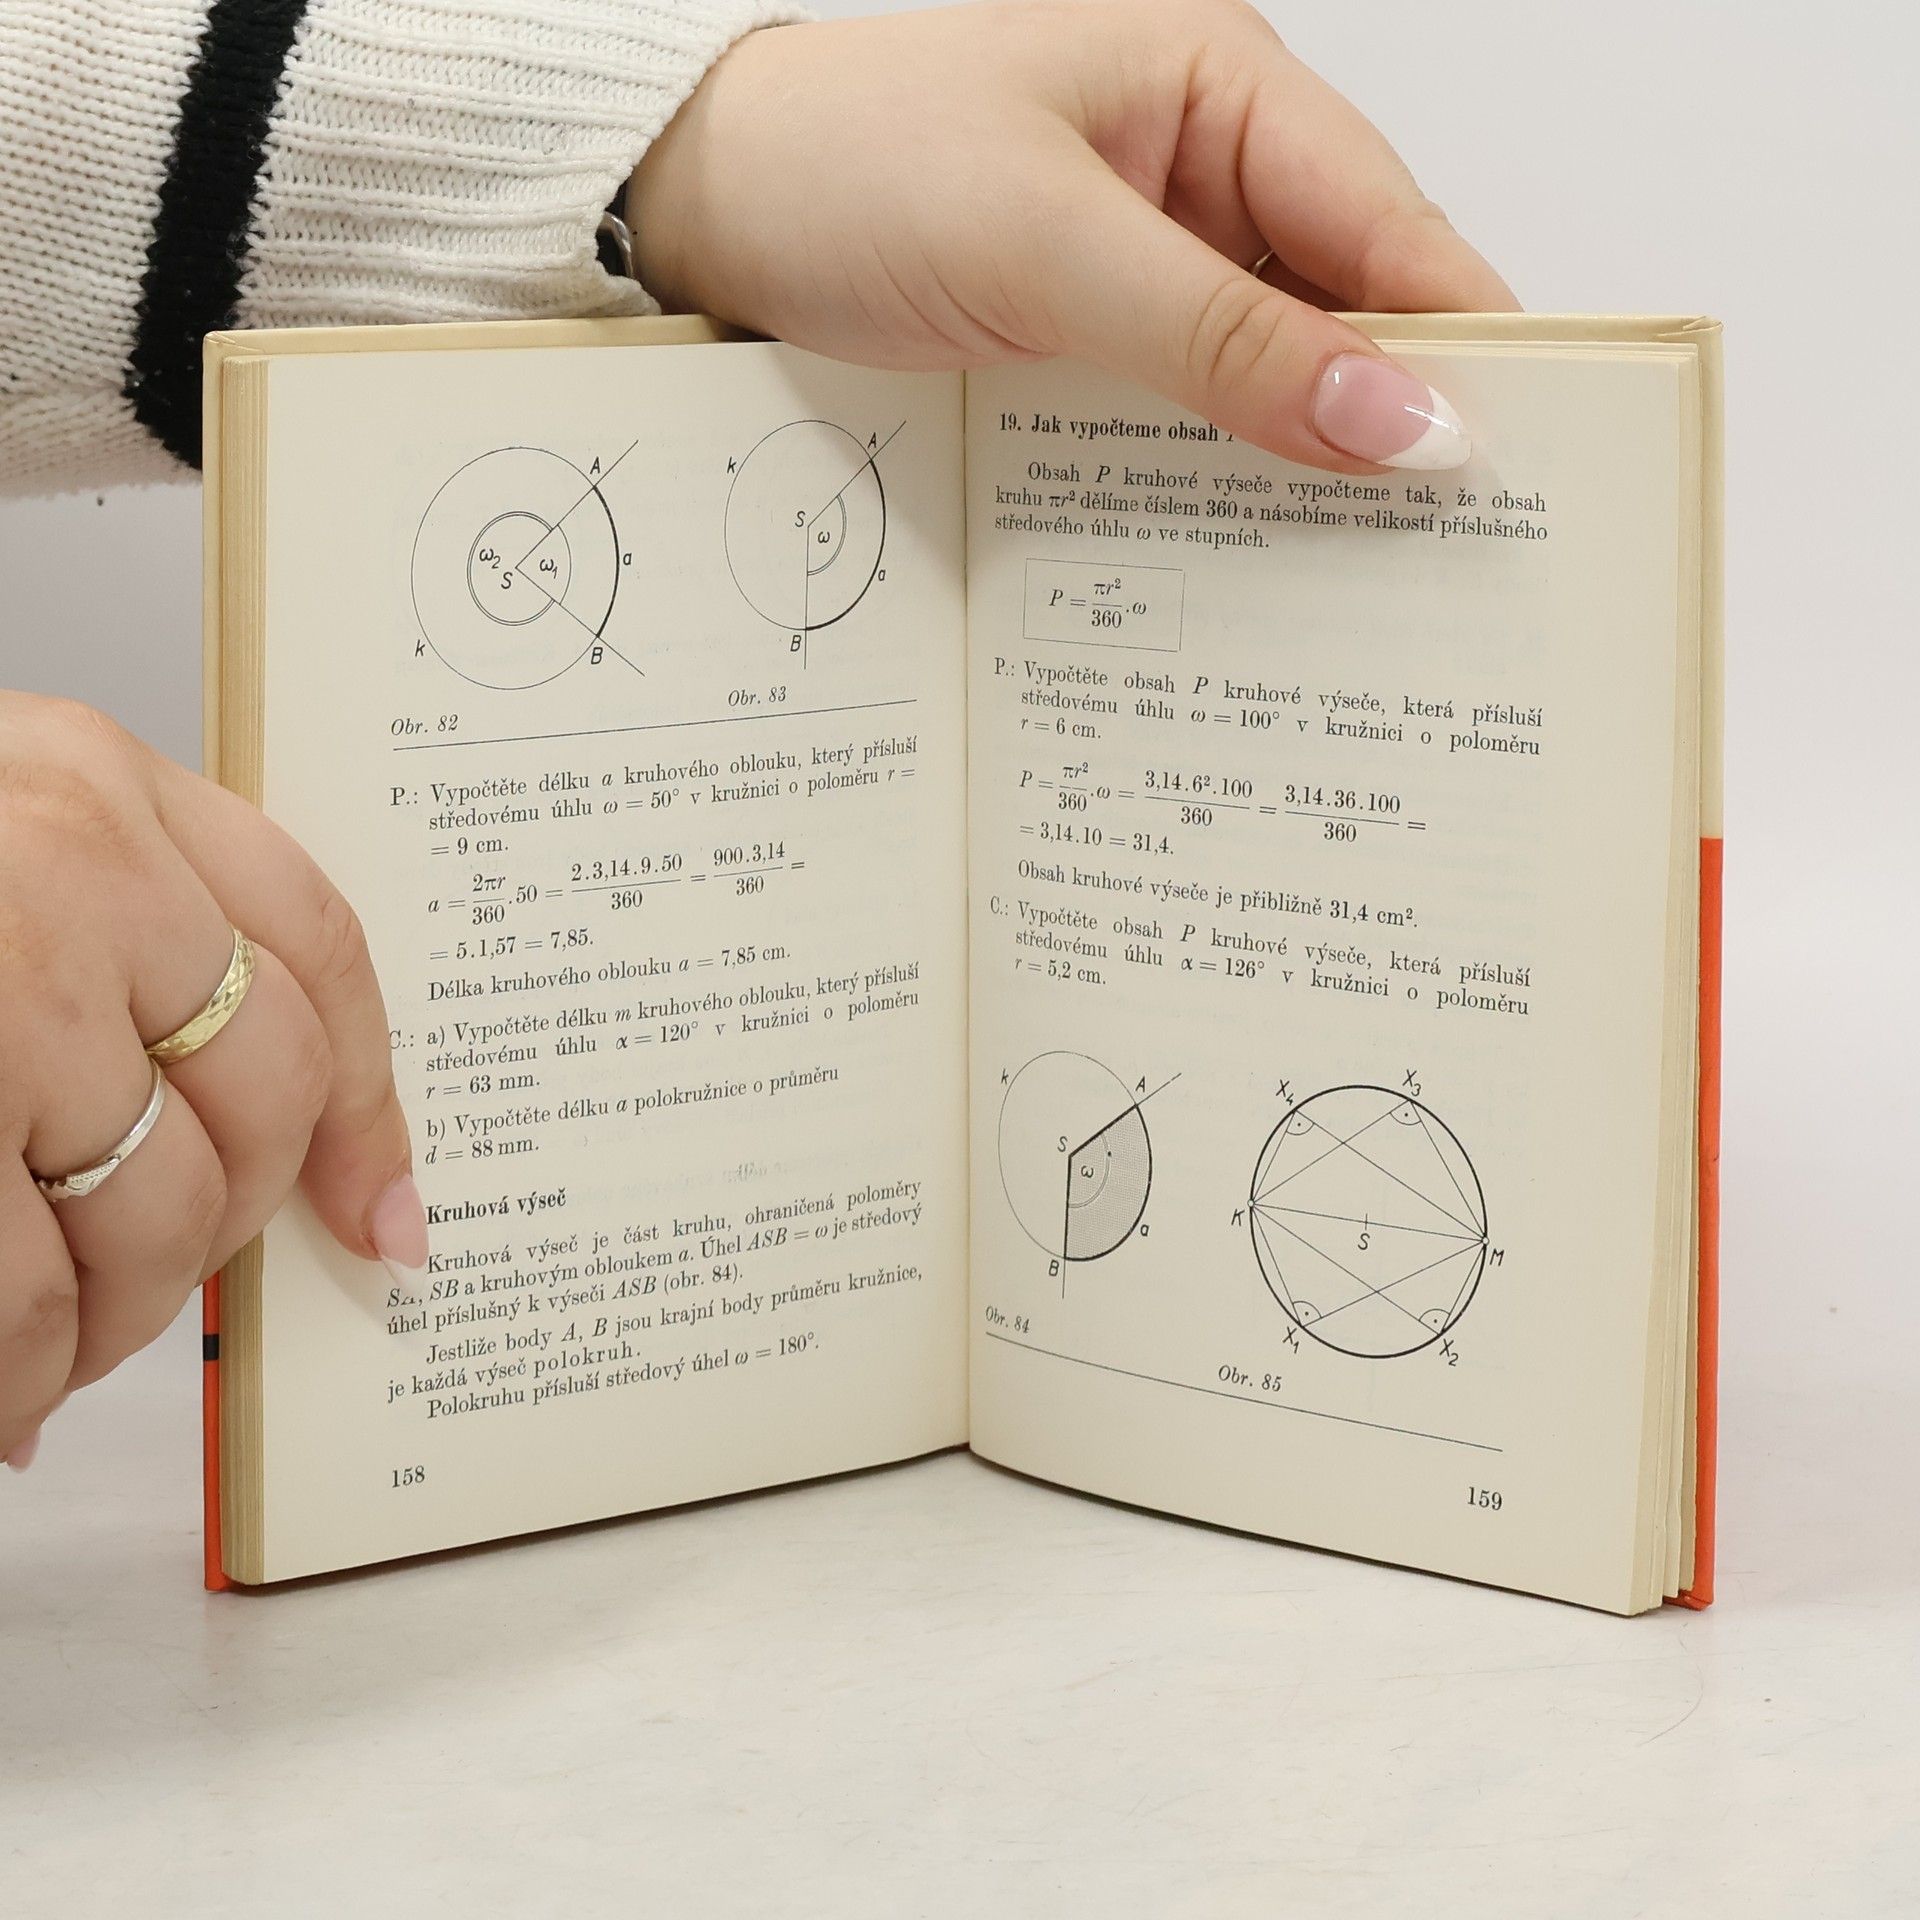 A
ω₂
ω₁
S
a
k
B
Obr. 82
k
A
S
ω
a
B
Obr. 83
P.: Vypočtěte délku a kruhového oblouku, který přísluší
středovému úhlu ω = 50° v kružnici o poloměru r =
= 9 cm.
a = 2πr/360 . 50 = 2.3,14.9.50/360 = 900.3,14/360 =
= 5.1,57 = 7,85.
Délka kruhového oblouku a = 7,85 cm.
C.: a) Vypočtěte délku m kruhového oblouku, který přísluší
středovému úhlu α = 120° v kružnici o poloměru
r = 63 mm.
b) Vypočtěte délku a polokružnice o průměru
d = 88 mm.
Kruhová výseč
Kruhová výseč je část kruhu, ohraničená poloměry
SA, SB a kruhovým obloukem a. Úhel ASB = ω je středový
úhel příslušný k výseči ASB (obr. 84).
Jestliže body A, B jsou krajní body průměru kružnice,
je každá výseč polokruh.
Polokruhu přísluší středový úhel ω = 180°.
158
19. Jak vypočteme obsah
Obsah P kruhové výseče vypočteme tak, že obsah
kruhu πr² dělíme číslem 360 a násobíme velikostí příslušného
středového úhlu ω ve stupních.
P = πr²/360 . ω
P.: Vypočtěte obsah P kruhové výseče, která přísluší
středovému úhlu ω = 100° v kružnici o poloměru
r = 6 cm.
P = πr²/360 . ω = 3,14.6².100/360 = 3,14.36.100/360 =
= 3,14.10 = 31,4.
Obsah kruhové výseče je přibližně 31,4 cm².
C.: Vypočtěte obsah P kruhové výseče, která přísluší
středovému úhlu α = 126° v kružnici o poloměru
r = 5,2 cm.
k
A
S
ω
a
B
Obr. 84
X₄
X₃
K
S
M
X₁
X₂
Obr. 85
159